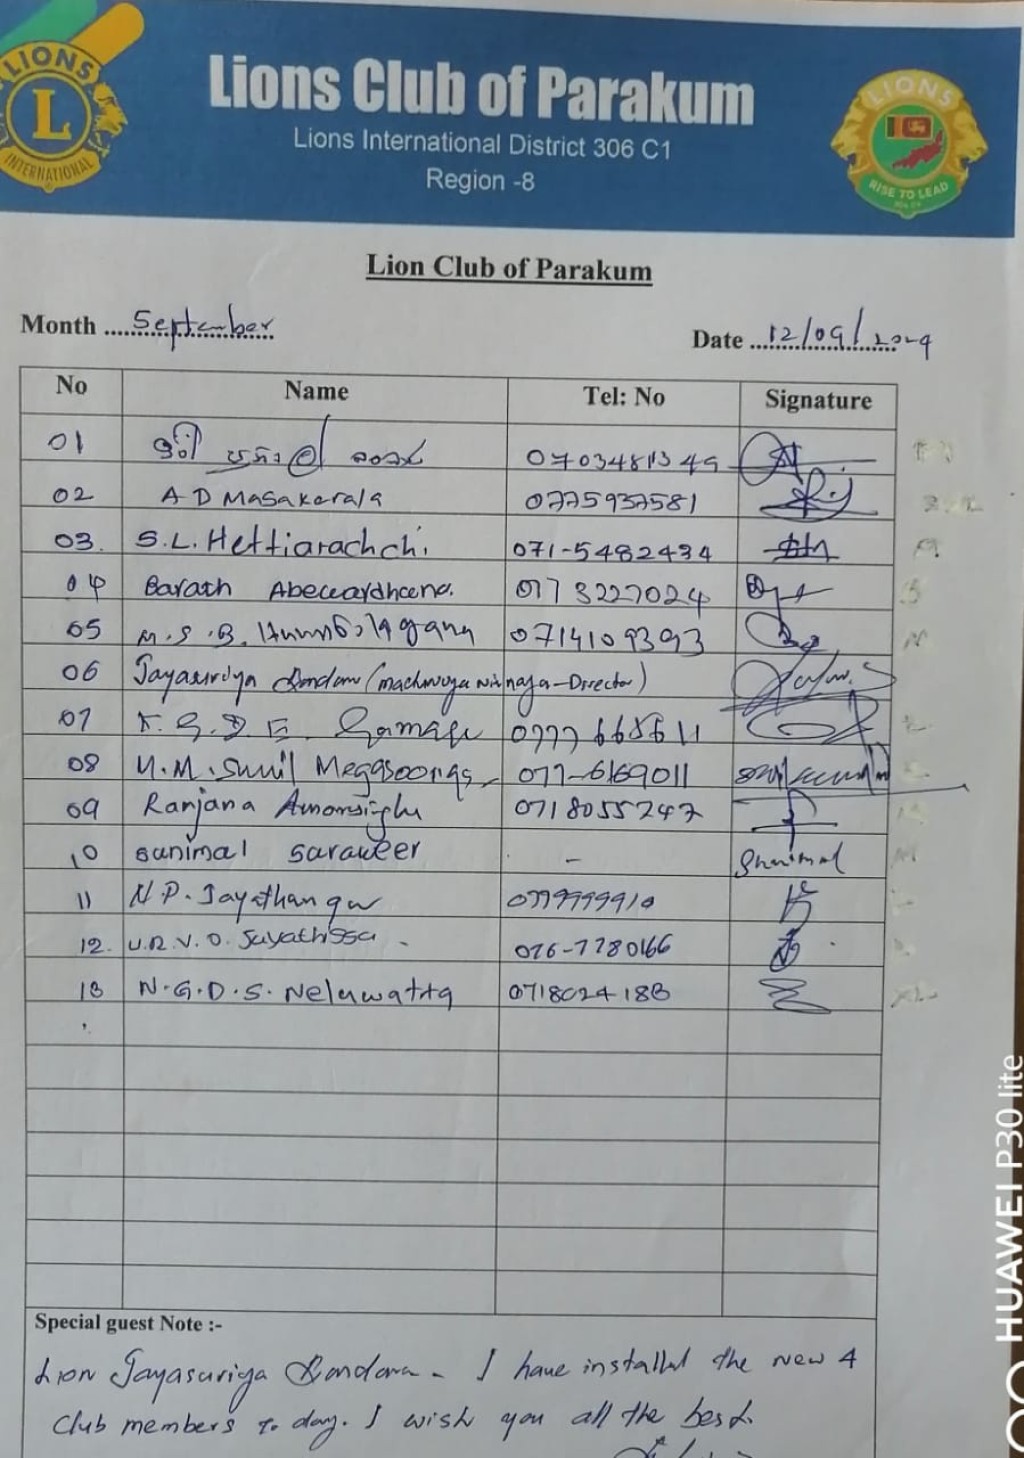 LIONS
L
INTERNATIONAL
Lions Club of Parakum
Lions International District 306 C1
Region -8
LIONS
RISE TO LEAD
Lion Club of Parakum
Month ....September
Date ...12/09/2024
No Name Tel: No Signature
01 0703481349
02 A D Masakorala 0775937581
03. S.L. Hettiarachchi 071-5482434
04 Barath Abeewardheena. 0773227024
05 M.S.B. 0714109393
06 Jayasuriya Bandara (machwoya -Director)
07 K.G.D.E. Gamage 0777668611
08 U.M. Sunil 077-6169011
09 Ranjana Amarsinghe 0718055247
10 Sanimal Saraweer - Shanimal
11 N.P. Jayathanga 0779999910
12. U.R.V.D. Jayathissa - 076-7780166
13 N.G.D.S. Neluwatta 071802418
Special guest Note :-
Lion Jayasuriya Bandara - I have installed the new 4
Club members to day. I wish you all the best.
HUAWEI P30 lite